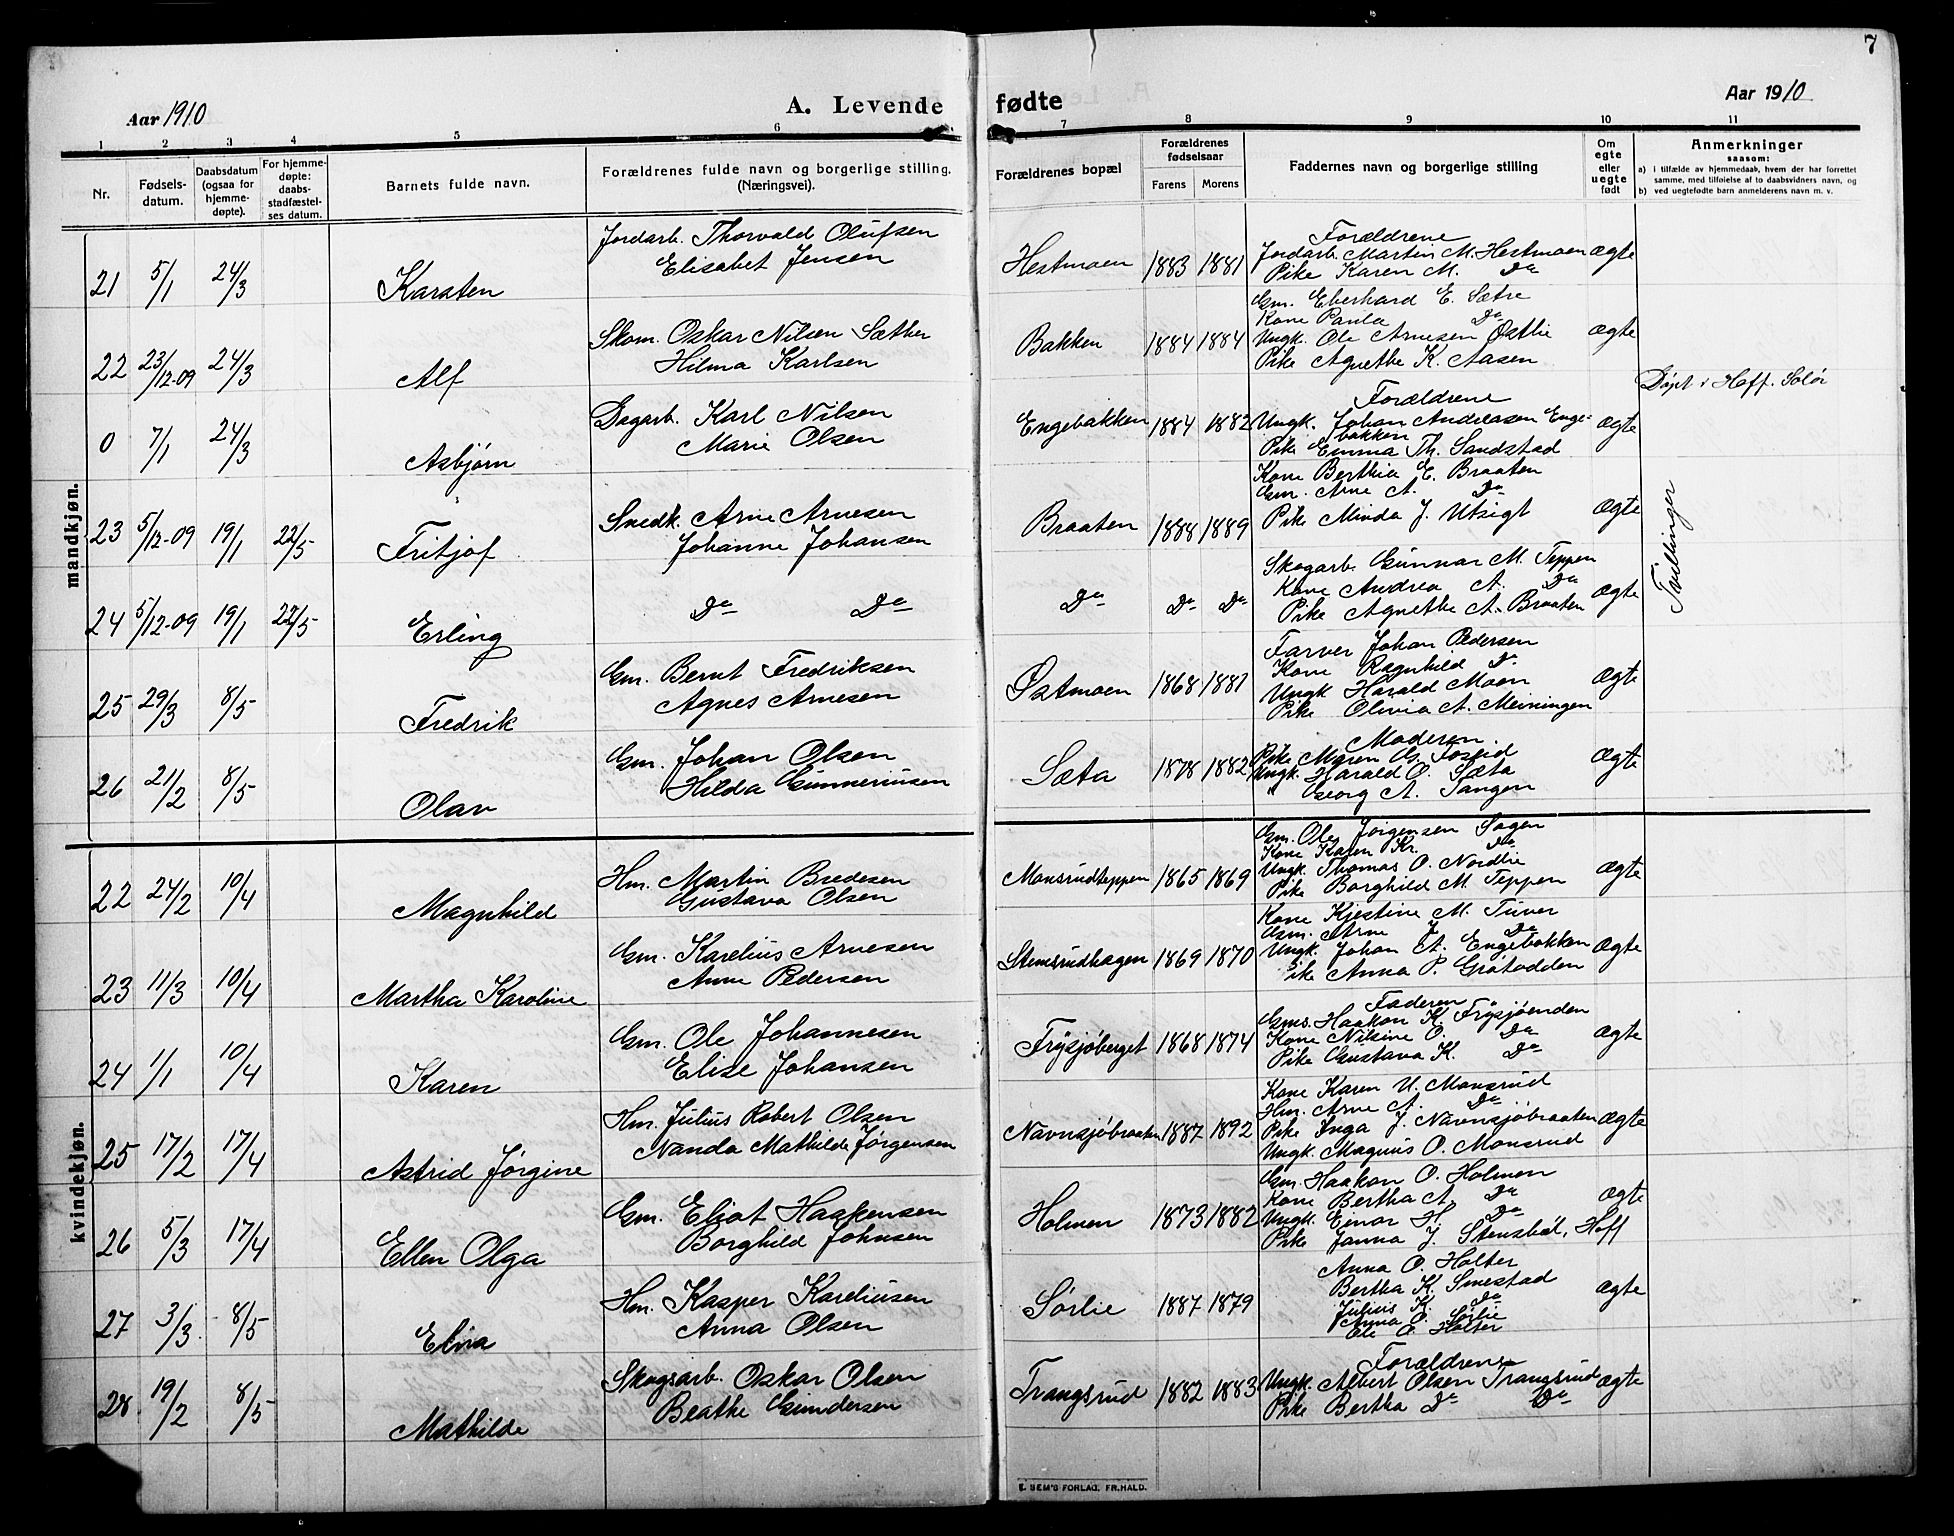 7
Aar 1910
A. Levende
fødte
Aar 1910
1 2 3 4 5 6 7 8 9 10 11
Nr.
Fødsels-
datum.
Daabsdatum
(ogsaa for
hjemme-
døpte).
For hjemme-
døpte:
daabs-
stadfæstel-
ses datum.
Barnets fulde navn.
Forældrenes fulde navn og borgerlige stilling.
(Næringsvei).
Forældrenes bopæl
Forældrenes
fødselsaar
Farens Morens
Faddernes navn og borgerlige stilling
Om
egte
eller
uegte
født
Anmerkninger
saasom:
a) i tilfælde av hjemmedaab, hvem der har forrettet
samme, med tilføielse af to daabsvidners navn, og
b) ved uegtefødte barn anmelderens navn m. v.
mandkjøn.
21 5/1 24/3 Karsten
Jordarb. Thorvald Olufsen
Elisabet Jensen
Hestmoen 1883 1881
Forældrene
Jordarb. Martin M. Hestmoen
Pike Karen M. Do
Ægte
22 23/12-09 24/3 Alf
Skom. Oskar Nilsen Sæther
Hilma Karlsen
Bakken 1884 1884
Gm. Eberhard E. Sætre
Kone Paula Do
Ungk. Ole Arnesen Østlie
Pike Agnethe K. Aasen
Ægte
Døpt i Hoff. Solør
0 7/1 24/3 Asbjørn
Dagarb. Karl Nilsen
Marie Olsen
Engebakken 1884 1882
Forældrene
Ungk. Johan Andreasen Enge-
bakken
Pike Emma Th. Sandstad
Ægte
23 5/12-09 19/1 22/5 Fritjof
Snedk. Arne Arnesen
Johanne Johansen
Braaten 1888 1889
Kone Berthia E. Braaten
Gm. Arne A. Do
Pike Minda J. Utsigt
Ægte
Tvillinger
24 5/12-09 19/1 22/5 Erling
Do Do
Do Do Do
Skogarb. Gunnar M. Teppen
Kone Andrea A. Do
Pike Agnethe A. Braaten
Ægte
25 29/3 8/5 Fredrik
Gm. Bernt Fredriksen
Agnes Arnesen
Østmoen 1868 1881
Farver Johan Pedersen
Kone Ragnhild Do
Ungk Harald Moen
Pike Olivia A. Meiningen
Ægte
26 21/2 8/5 Olav
Gm. Johan Olsen
Hilda Gunneriusen
Sæta 1878 1882
Moderen.
Pike Maren G. Foseid
Ungk. Harald O. Sæta
" Georg A. Tangen
Ægte
kvindekjøn.
22 24/2 10/4 Magnhild
Hm. Martin Bredesen
Gustava Olsen
Monsrudteppen 1865 1869
Gm. Ole Jørgensen Sagen
Kone Karen Kr. Do
Ungk. Thomas O. Nordlie
Pike Borghild M. Teppen
Ægte
23 11/3 10/4 Martha Karoline
Gm. Karelius Arnesen
Anne Pedersen
Stemsrudhagen 1869 1870
Kone Kjestine M. Tuver
Gm. Arne J. Do
Ungk. Johan A. Engebakken
Pike Anna P. Grøtodden
Ægte
24 1/1 10/4 Karen
Gm. Ole Johannesen
Elise Johansen
Frysjøberget 1868 1874
Faderen
Gms. Haakon K. Frysjøenden
Kone Nilsine O. Do
Pike Gustava K. Do
Ægte
25 17/2 17/4 Astrid Jørgine
Hm. Julius Robert Olsen
Nanda Mathilde Jørgensen
Navnsjøbraaten 1887 1892
Kone Karen U. Monsrud
Hm. Arne A. Do
Pike Inga J. Navnsjøbraaten
Ungk. Magnus O. Monsrud
Ægte
26 5/3 17/4 Ellen Olga
Gm. Eliot Haakensen
Borghild Johnsen
Holmen 1873 1882
Gm. Haakon O. Holmen
Kone Bertha A. Do
Ungk. Einar H. Do
Pike Janna J. Stensbøl, Hoff
Ægte
27 3/3 8/5 Elvia
Hm. Kasper Kareliusen
Anna Olsen
Sørlie 1887 1879
Anna O. Holter
Bertha K. Smestad
Julius K. Do
Anna O. Sørlie
Ole O. Holter
Ægte
28 19/2 8/5 Mathilde
Skogsarb. Oskar Olsen
Beathe Gundersen
Trangsrud 1882 1883
Forældrene
Ungk. Albert Olsen Trangsrud
Pike Bertha Do Do
Ægte
E. SEM'S FORLAG, FR.HALD.